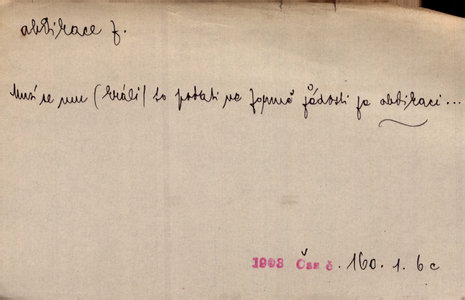 abdikace f.
Musí se mu (králi) to podati ve formě žádosti abdikaci...
1903 Čas č. 160. 1. 6 c